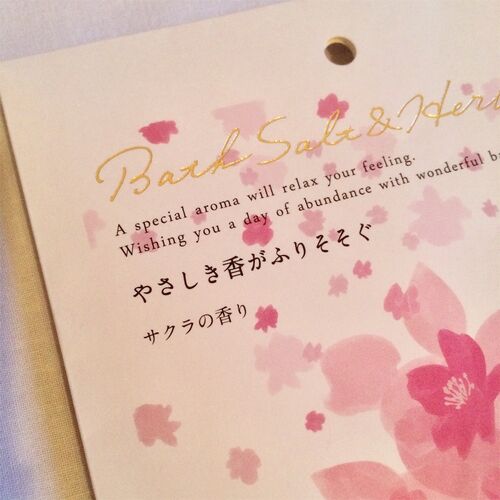 Bath Salt & Her
A special aroma will relax your feeling.
Wishing you a day of abundance with wonderful b
やさしき香がふりそそぐ
サクラの香り